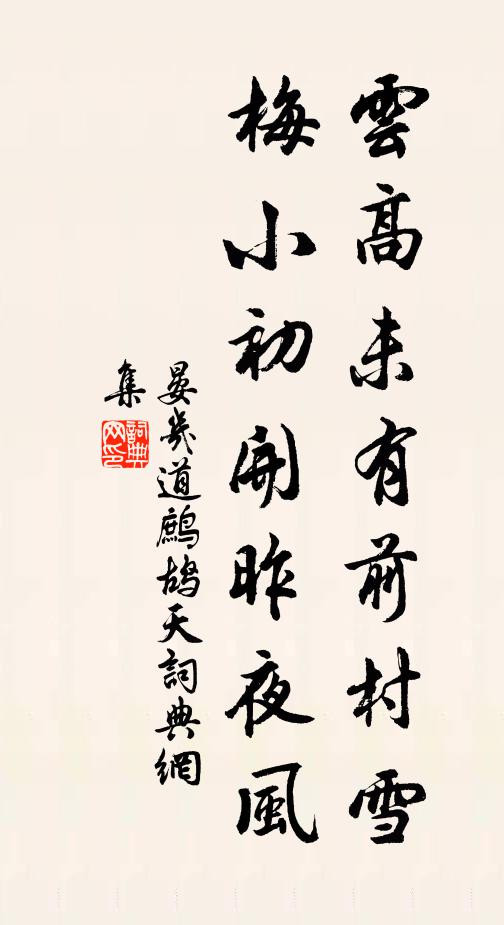 雲高未有前村雪
梅小初開昨夜風
晏幾道鷓鴣天詞典網
集
詞典網印